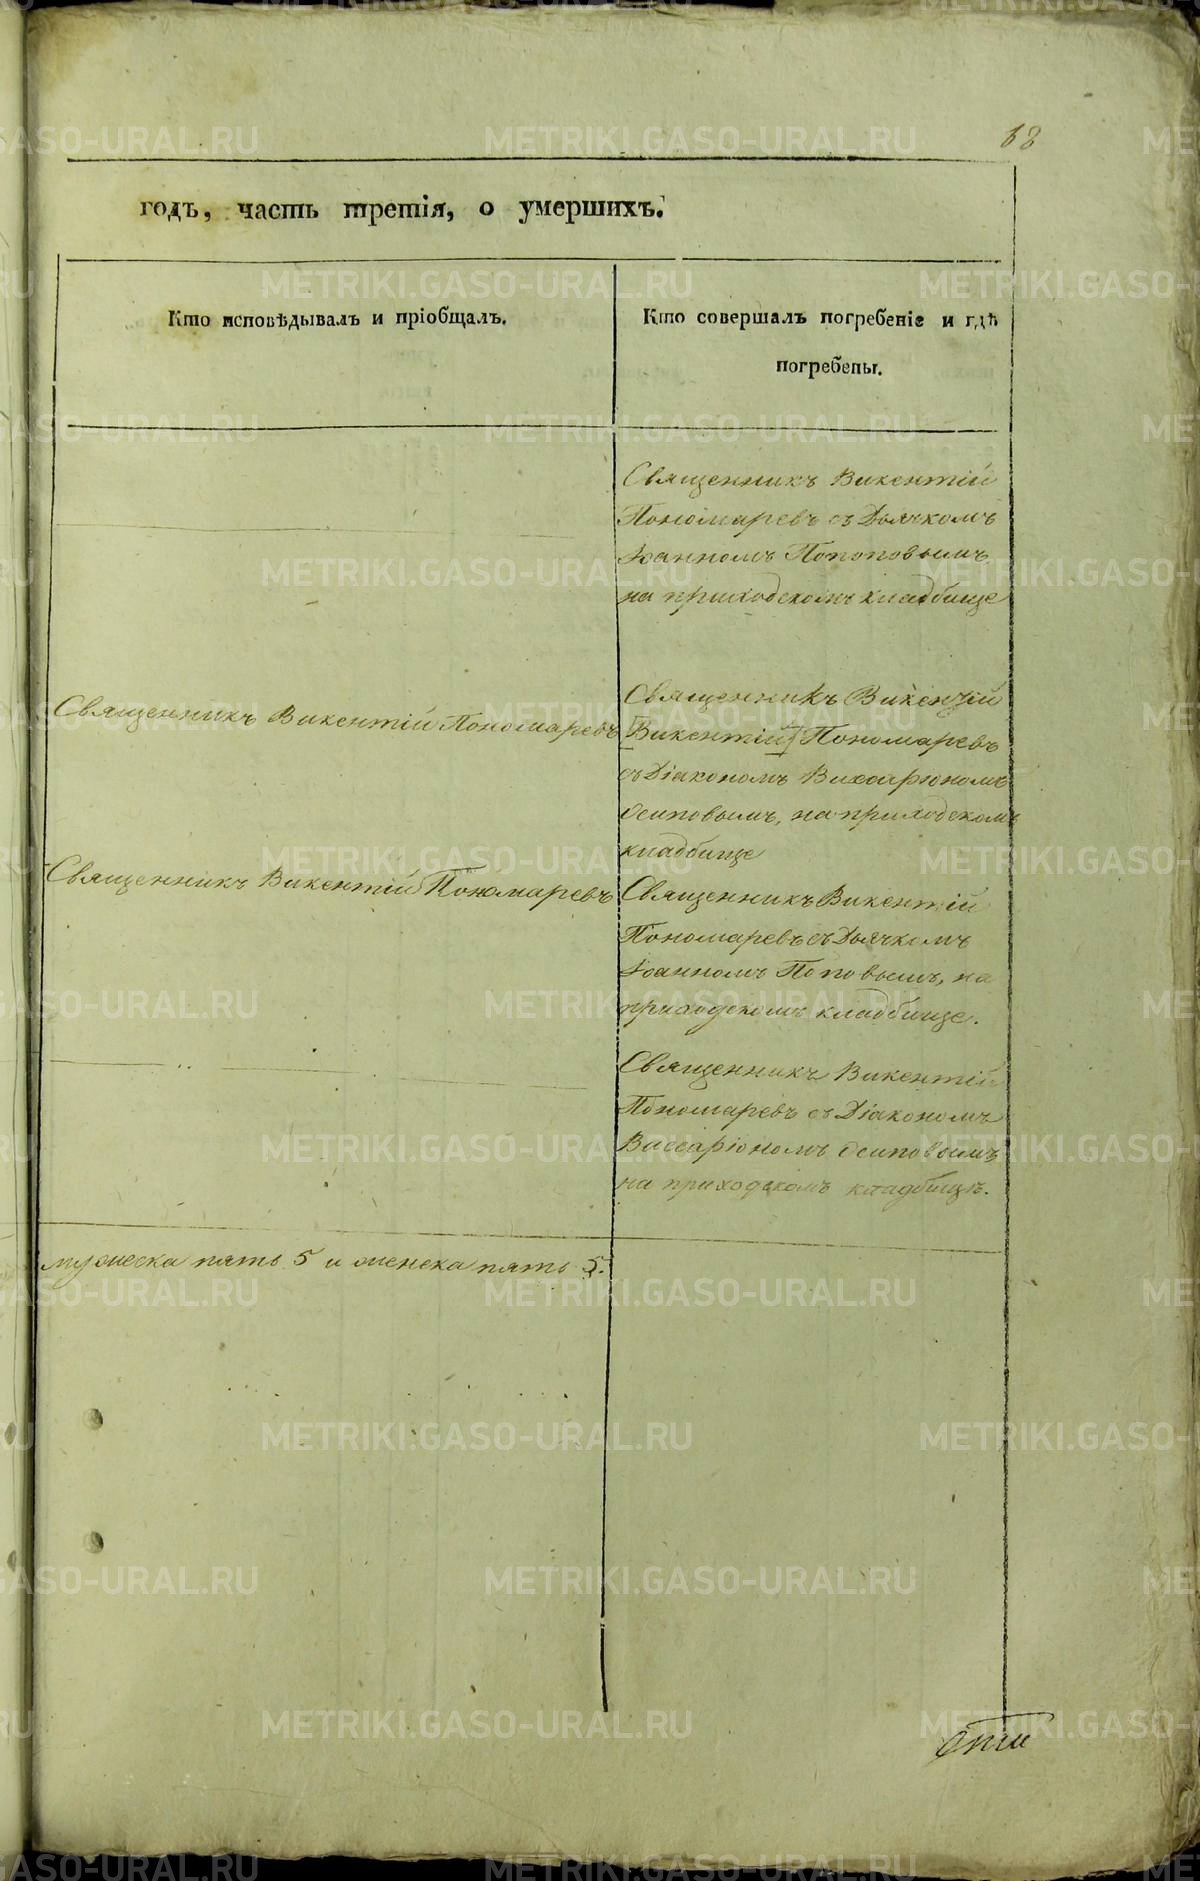 68
годъ, часть третія, о умершихъ.
Кто исповѣдывалъ и пріобщалъ.
Кто совершалъ погребеніе и гдѣ
погребены.
Священникъ Викентій
Пономаревъ съ Дьячкомъ
Іоанномъ Попоповымъ
на приходскомъ кладбище
Священникъ Викентій Пономаревъ
Священникъ Викентій
[Викентій] Пономаревъ
съ Діакономъ Виссаріономъ
Осиповымъ, на приходскомъ
кладбище
Священникъ Викентій Пономаревъ
Священникъ Викентій
Пономаревъ съ Дьячкомъ
Іоанномъ Поповымъ, на
приходскомъ кладбище.
Священникъ Викентій
Пономаревъ съ Діакономъ
Виссаріономъ Осиповымъ
на приходскомъ кладбищѣ.
мужеска пять 5 и женска пять 5.
METRIKI.GASO-URAL.RU